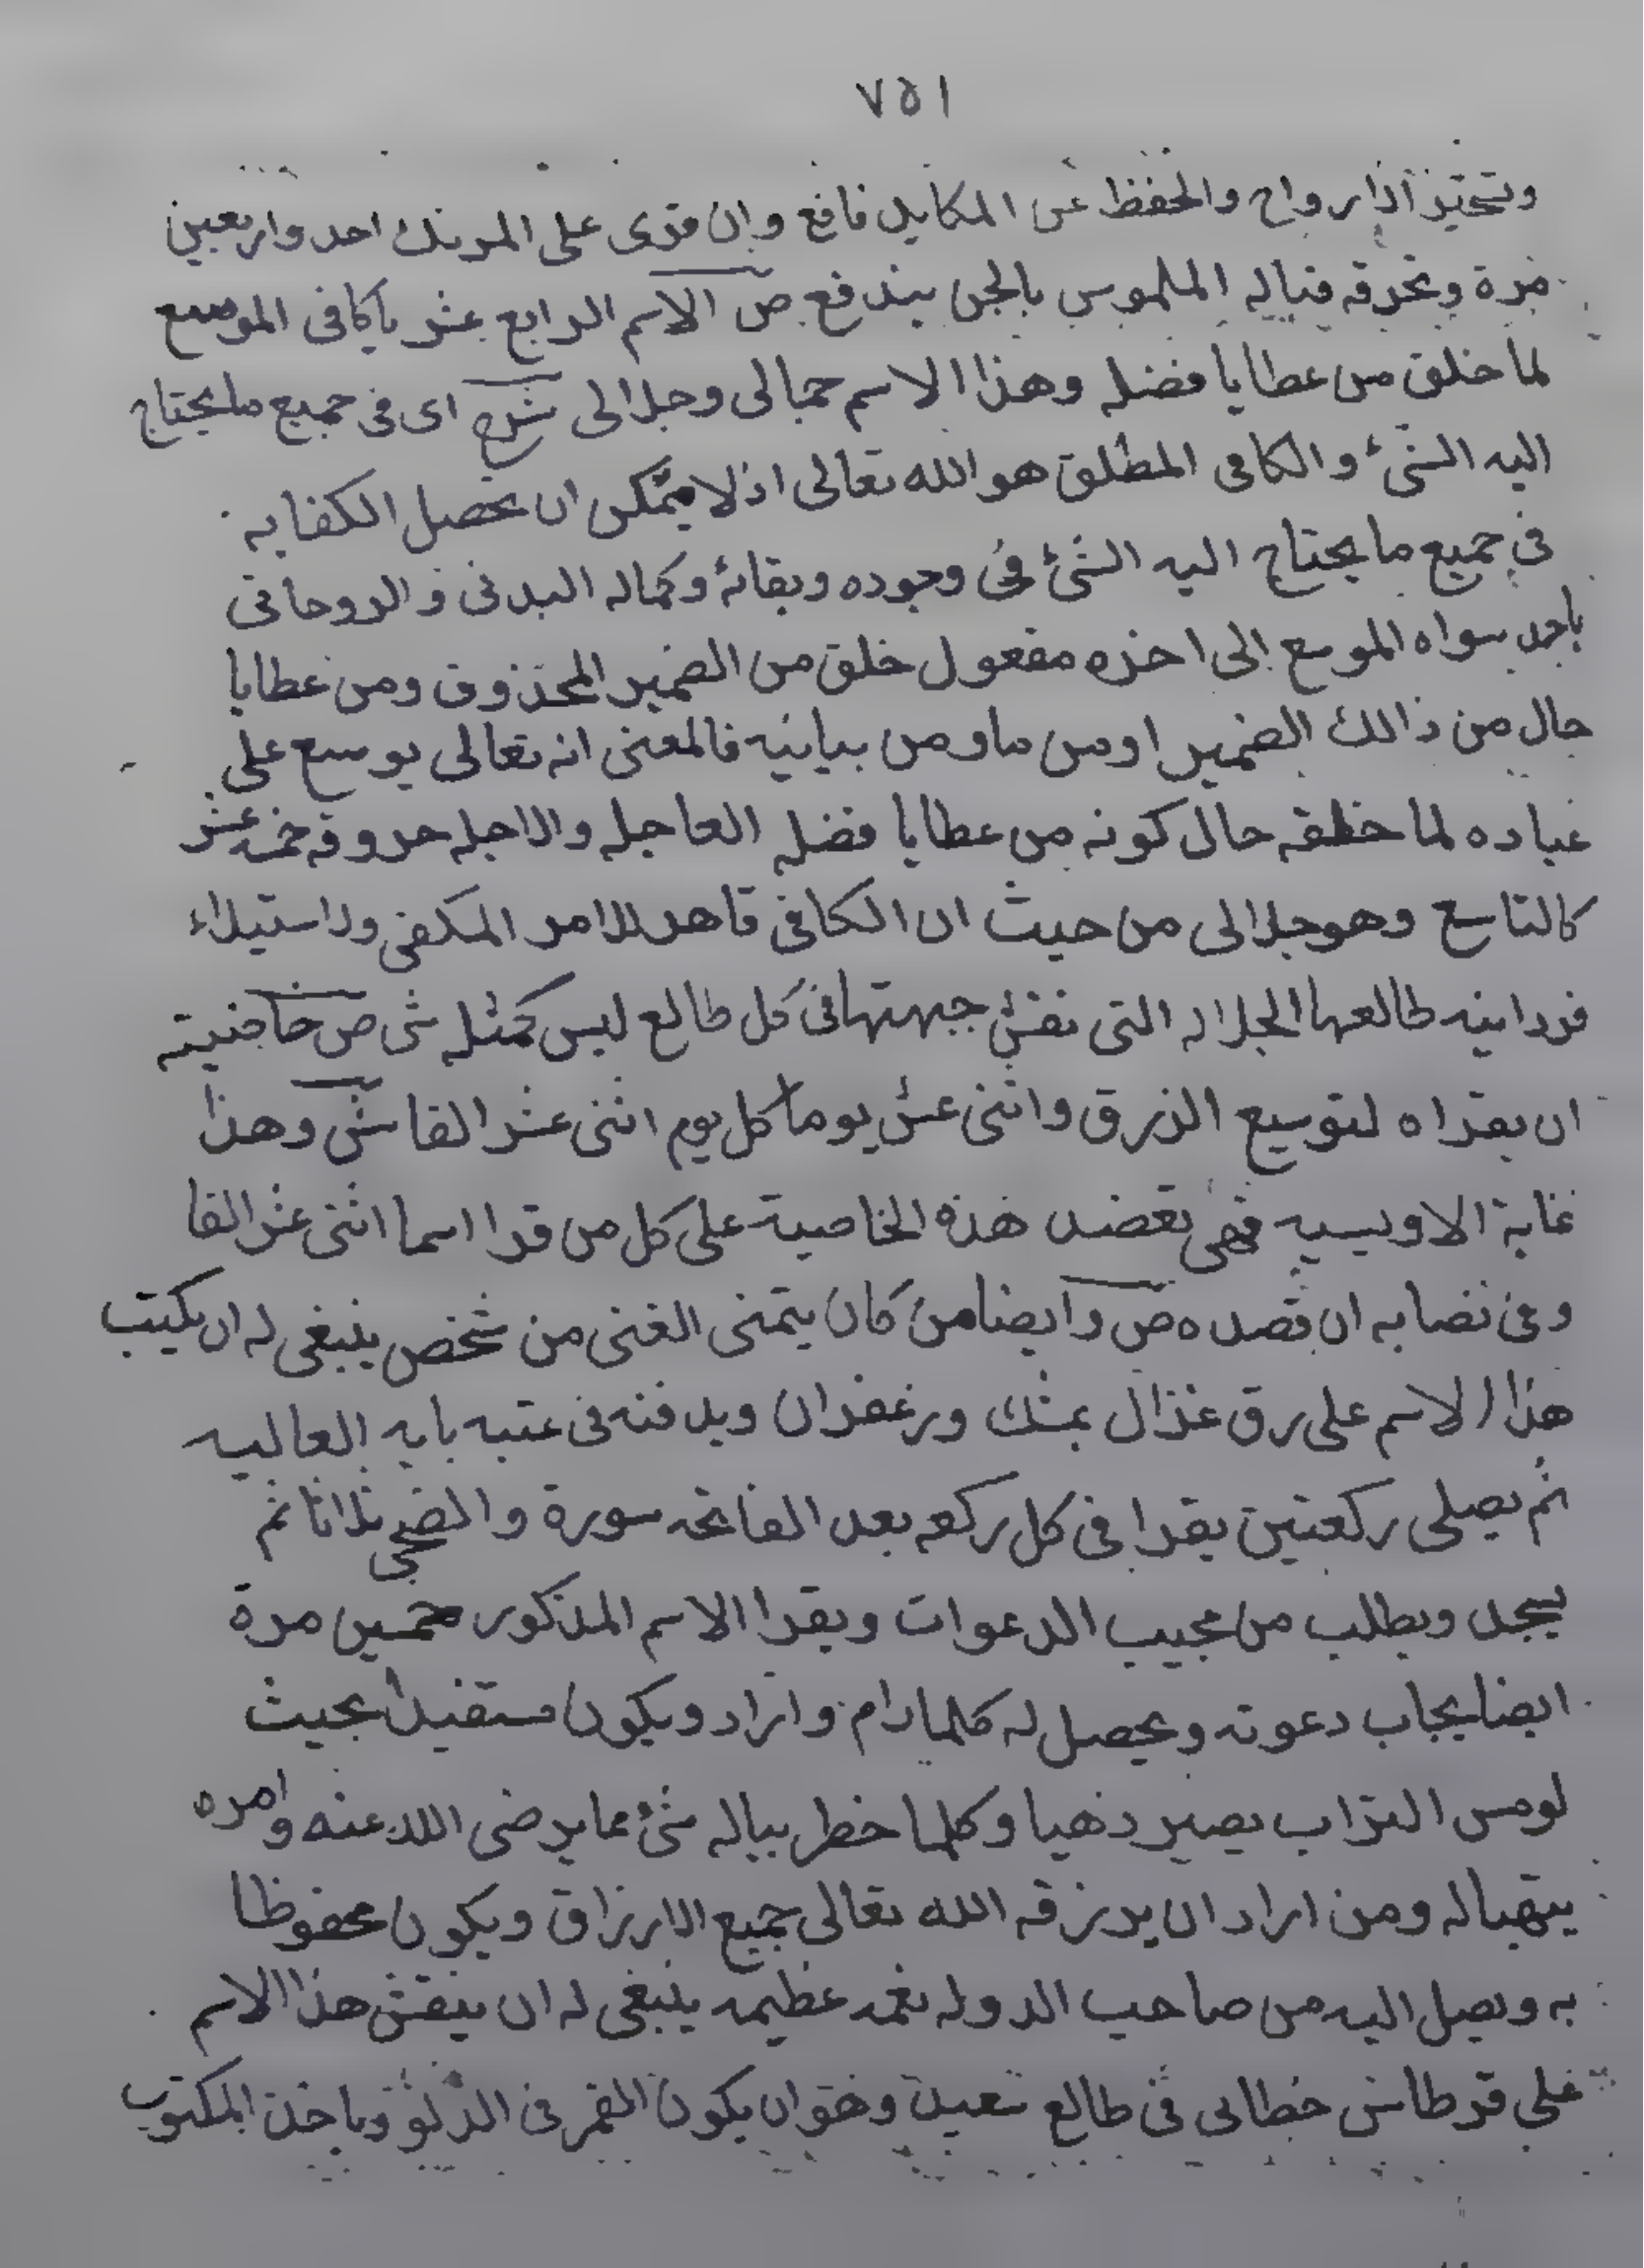 ٧٥١
الارواح والحفظ عن المكايد نافع وان قرى على المريض احد واربعين
مرة وتحرقه قباله الملموس بالجن يندفع ص الاسم الرابع عشر ياكافى الموسع
لما خلق من عطايا فضله وهذا الاسم جمالى وجلالى شرح اى فى جميع ما يحتاج
اليه الشئ والكافى المطلق هو الله تعالى اذ لا يمكن ان يحصل الكفايه
فى جميع ما يحتاج اليه الشئ فى وجوده وبقائه وكماله البدنى والروحانى
باحد سواه الموسع الى اخره مفعول خلق من الضمير المحذوف ومن عطايا
حال من ذالك الضمير او من ما ومن بيانيه فالمعنى انه تعالى يوسع على
عباده لما خلقه حال كونه من عطايا فضله العاجله والاجله حروفه خمسه عشر
كالتاسع وهو جلالى من حيث ان الكافى قاهر للامر المكفى ولاستيلاء
فردانيه طالعها الجلاله التى نفش جهتها فى كل طالع ليس كمثله شى ص خاصيته
ان يقراه لتوسيع الرزق واثنى عشر يوما كل يوم اثنى عشر الفا ش وهذا
غاية الاويسيه فهى بعضد هذه الخاصية على كل من قرا اسما اثنى عشر الفا
وفى نصابه ان قصده ص وايضا من كان يتمنى الغنى من شخص ينبغى له ان يكتب
هذا الاسم على رق غزال بمشك وزعفران ويدفنه فى عتبه بابه العاليه
ثم يصلى ركعتين يقرا فى كل ركعه بعد الفاتحه سورة والضحى ثلاثا ثم
يسجد ويطلب من مجيب الدعوات ويقرا الاسم المذكور خمسين مرة
ايضا يجاب دعوته ويحصل له كلما رام واراد ويكون مستفيدا بحيث
لو مس التراب يصير ذهبا وكلما خطر بباله شئ مما يرضى الله عنه وامره
يتهيا له ومن اراد ان يرزقه الله تعالى جميع الارزاق ويكون محفوظا
به ويصل اليه من صاحب الدوله نعمه عظيمه ينبغى له ان ينقش هذا الاسم
على قرطاس خطاى فى طالع سعيد وهو ان يكون القمر فى الدلو وياخذ المكتوب